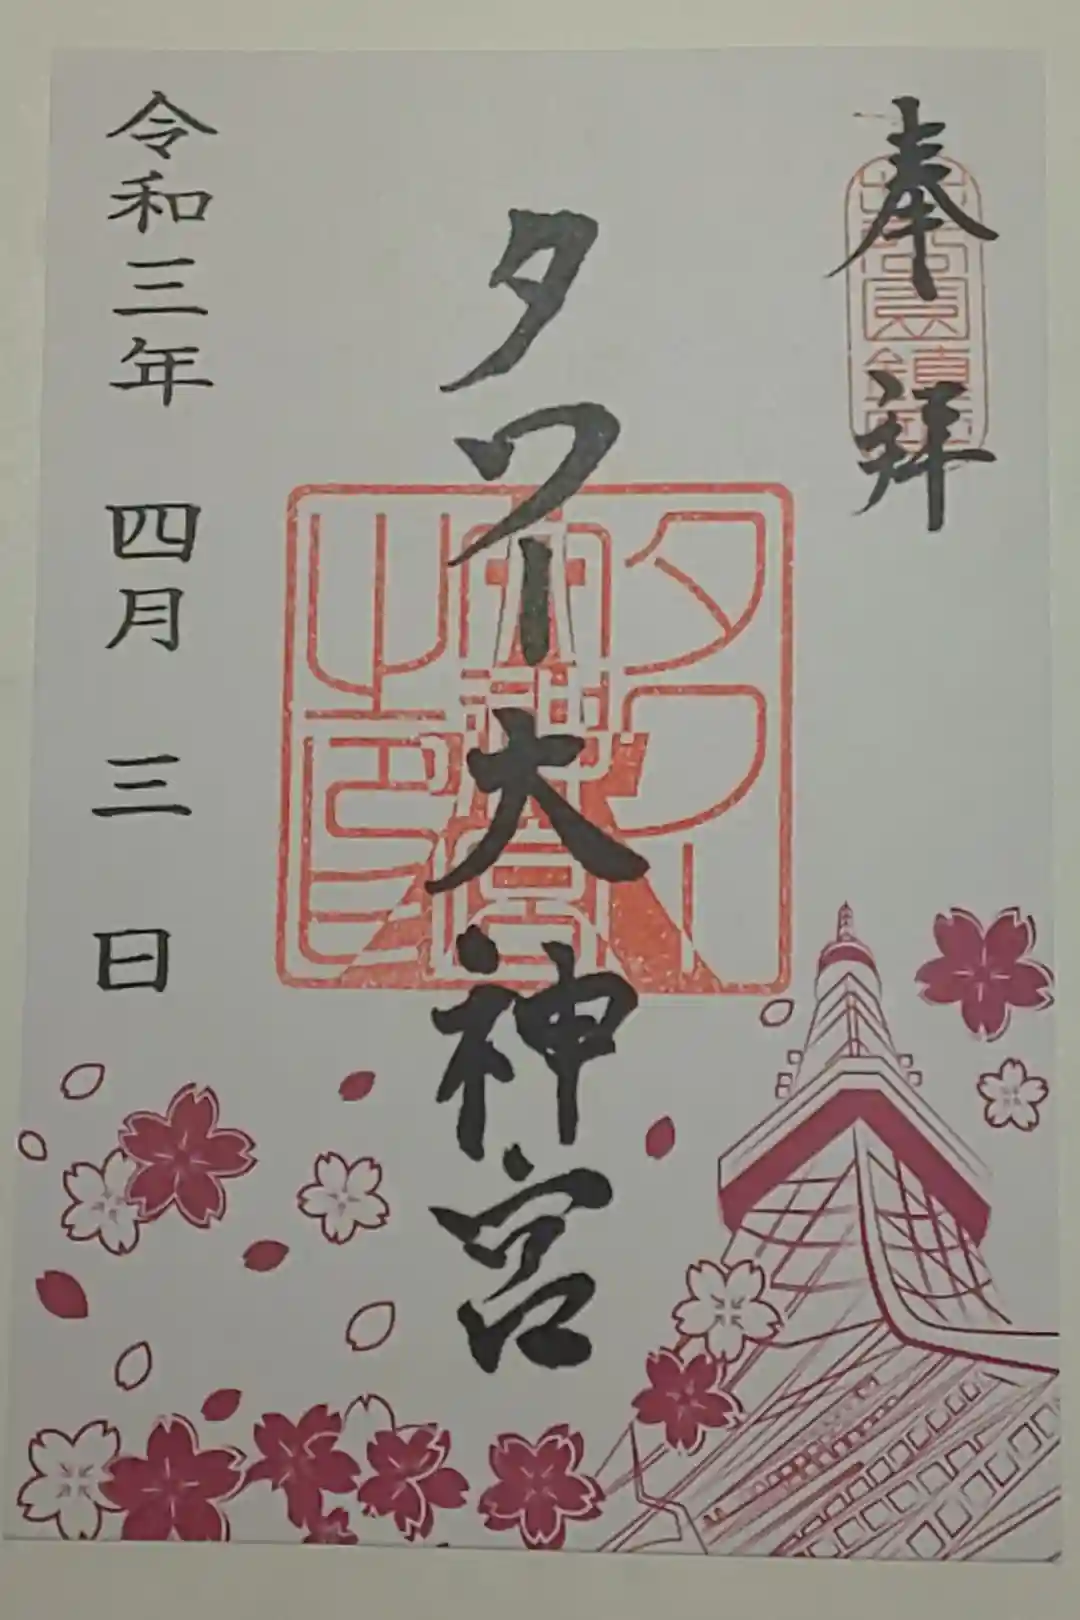 奉拝
タワー大神宮
令和三年 四月 三 日
タワー
大神宮
之印